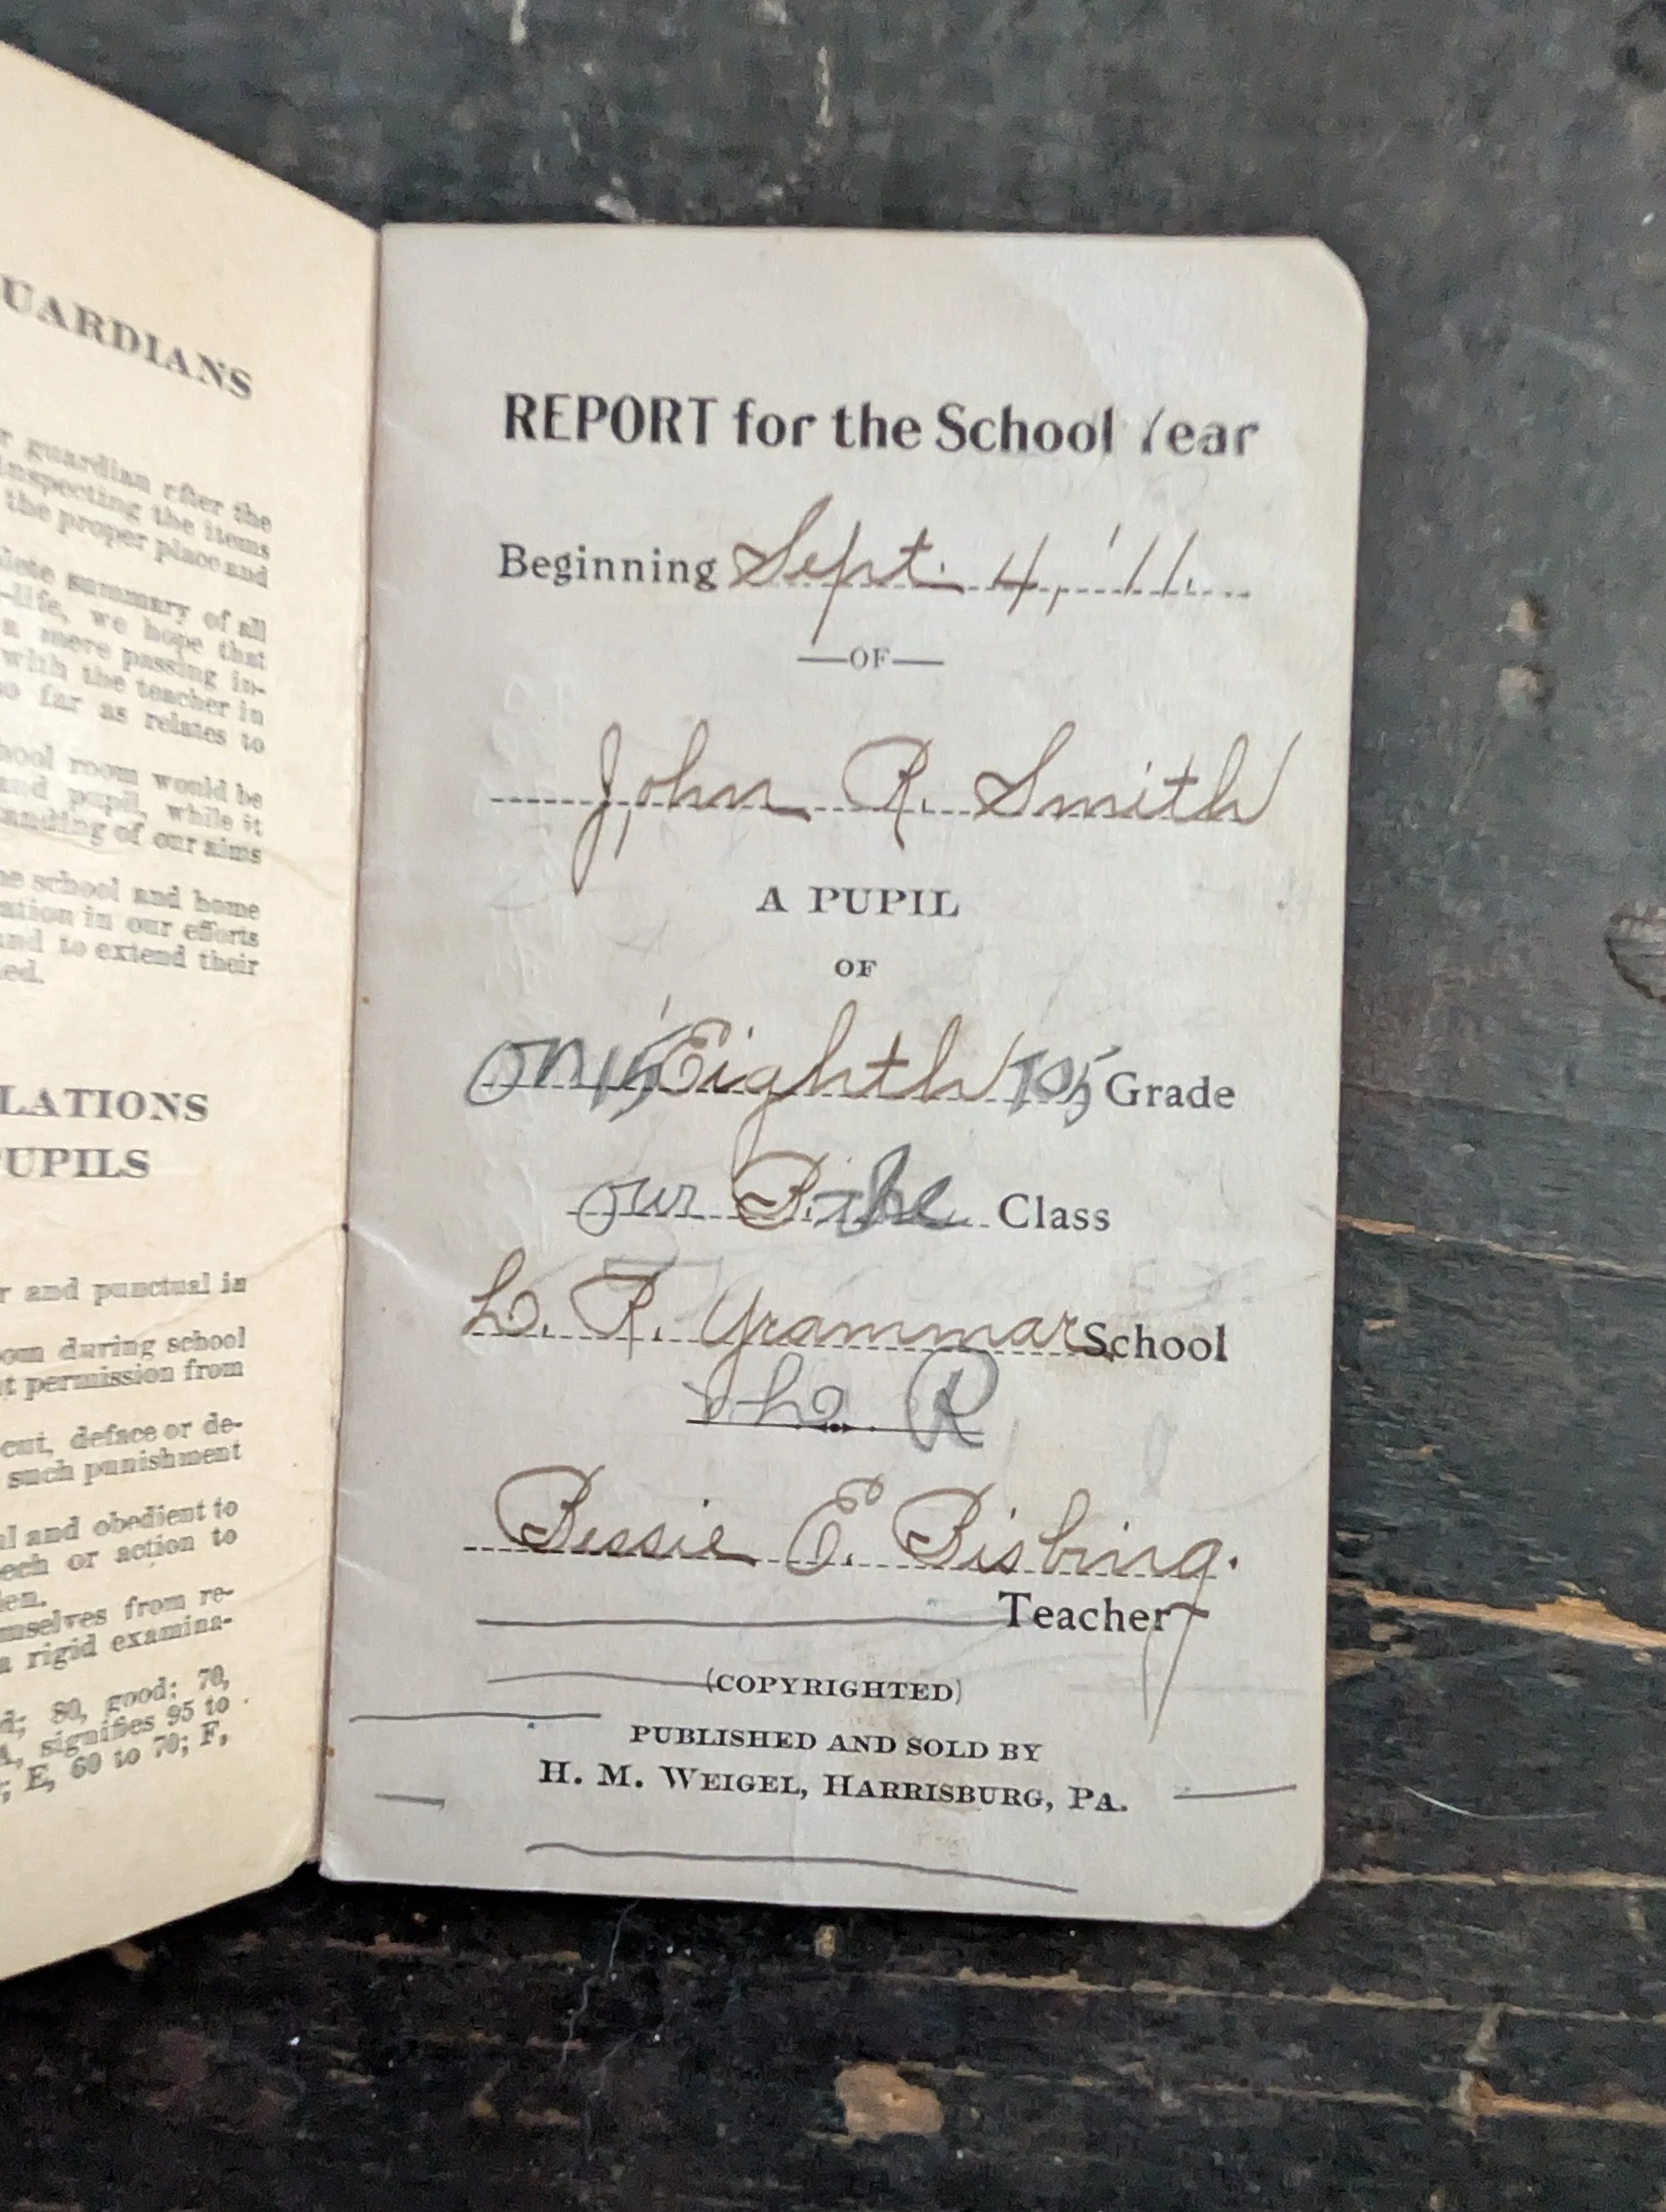 UARDIANS
r guardian rfter the
inspecting the items
the proper place and
lete summary of all
-life, we hope that
a mere passing in-
with the teacher in
so far as relates to
hool room would be
and pupil, while it
anding of our aims
he school and home
ration in our efforts
and to extend their
ed.
LATIONS
PUPILS
r and punctual is
oom during school
t permission from
cut, deface or de-
such punishment
al and obedient to
eech or action to
en.
mselves from re-
a rigid examina-
d; 80, good; 70,
A, signifies 95 to
; E, 60 to 70; F,
REPORT for the School Year
Beginning Sept. 4, '11.
—OF—
John R. Smith
A PUPIL
OF
Eighth Grade
our B. Class
L. R. Grammar School
L. R
Bessie E. Bisbing.
Teacher
(COPYRIGHTED)
PUBLISHED AND SOLD BY
H. M. WEIGEL, HARRISBURG, PA.